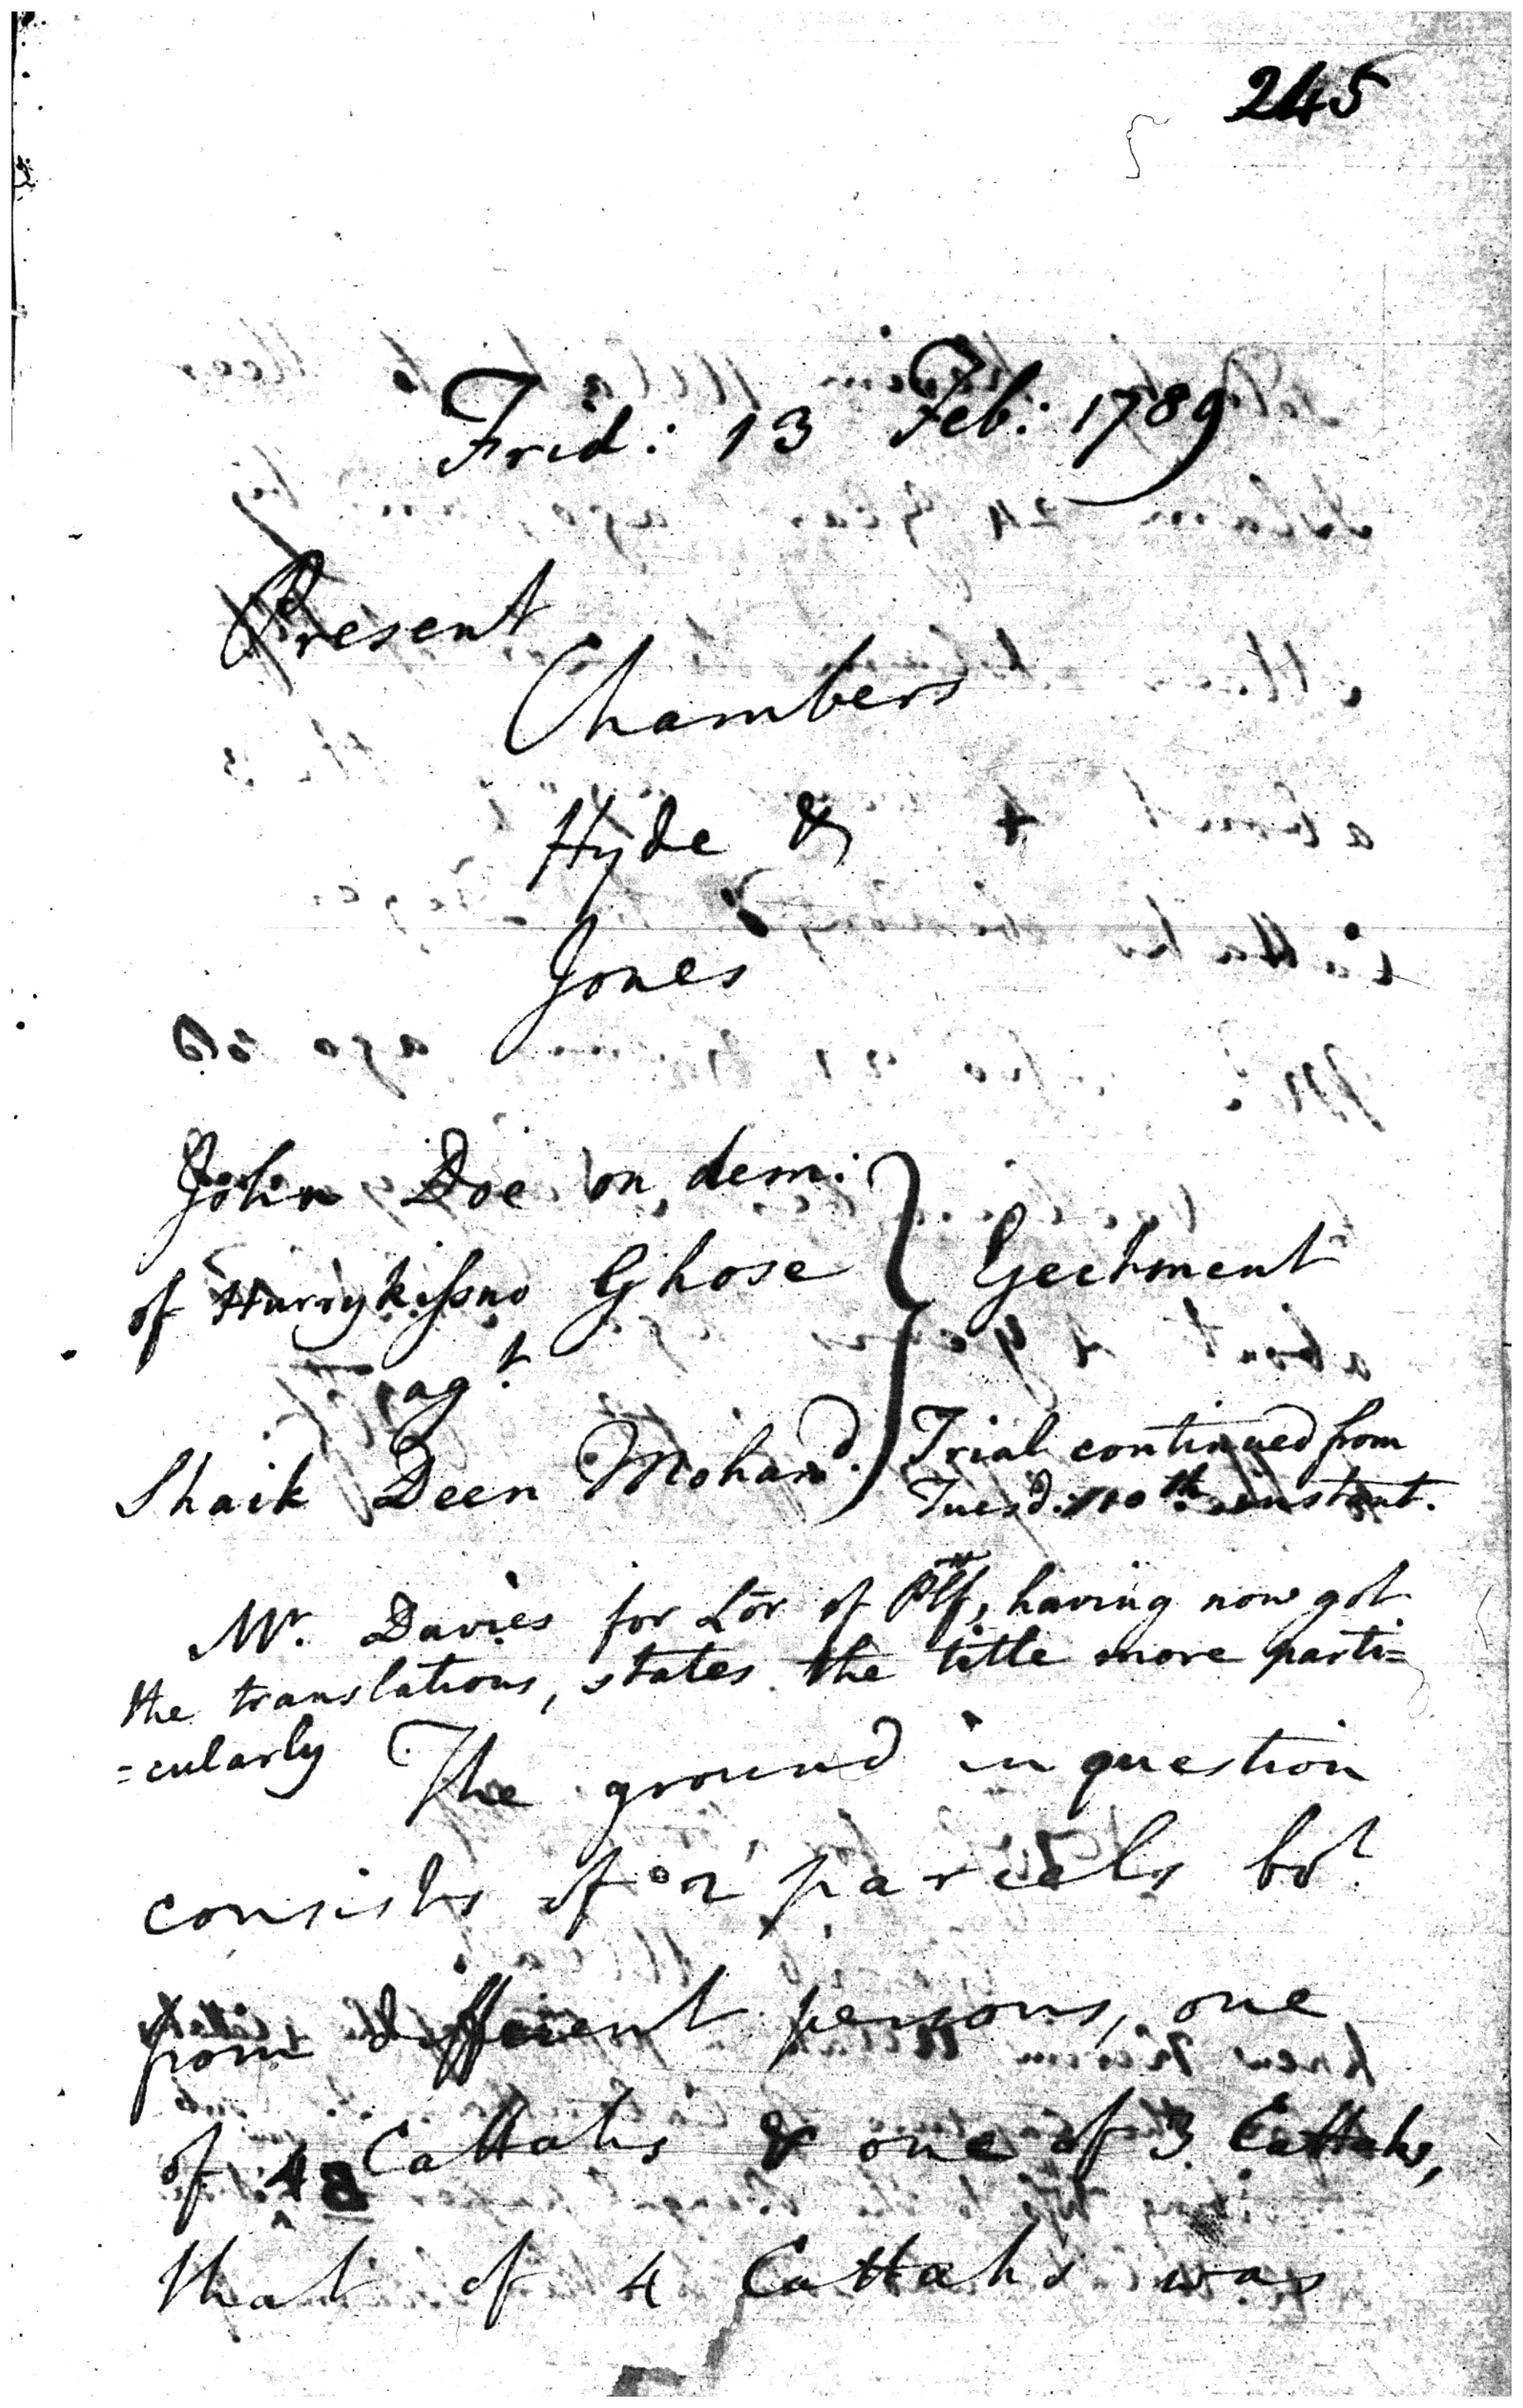 245
Frid: 13 Feb: 1789
Present
Chambers
Hyde &
Jones
John Doe on dem:
of Hurrykissno Ghose
agt
Shaik Deen Mohamd.
Ejectment
Trial continued from
Tuesd: 10th instant.
Mr. Davies for Lor of Plff, having now got
the translations, states the title more parti=
=cularly The ground in question
consists of 2 parcels bot
from different persons, one
of 4 Cattahs & one of 3 Cattahs,
that of 4 Cattahs was